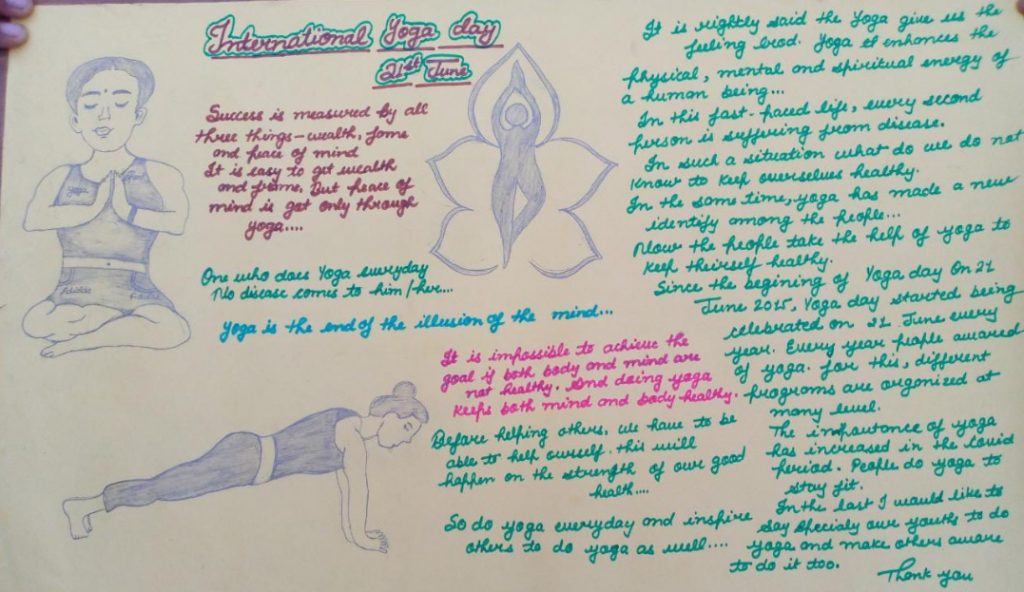 International Yoga day
21st June
Success is measured by all
three things - wealth, fame
and peace of mind
It is easy to get wealth
and frame. But peace of
mind is got only through
yoga....
One who does Yoga everyday
No disease comes to him/her....
Yoga is the end of the illusion of the mind...
It is impossible to achieve the
goal if both body and mind are
not healthy. And doing yoga
keeps both mind and body healthy.
Before helping others, we have to be
able to help ourself. this will
happen on the strength of our good
health....
So do yoga everyday and inspire
others to do yoga as well....
It is rightly said the Yoga give us the
feeling Yoga enhances the
physical, mental and spiritual energy of
a human being...
In this fast-paced life, every second
person is suffering from disease.
In such a situation what do we do not
know to keep ourselves healthy.
In the same time, yoga has made a new
identify among the people...
Now the people take the help of yoga to
keep theirself healthy.
Since the begining of Yoga day On 21
June 2015, Yoga day started being
celebrated on 21 June every
year. Every year people awared
of yoga. for this, different
programs are organized at
many level.
The importance of yoga
has increased in the Covid
period. People do yoga to
stay fit.
In the last I would like to
say specialy our youths to do
yoga and make others aware
to do it too.
Thank you